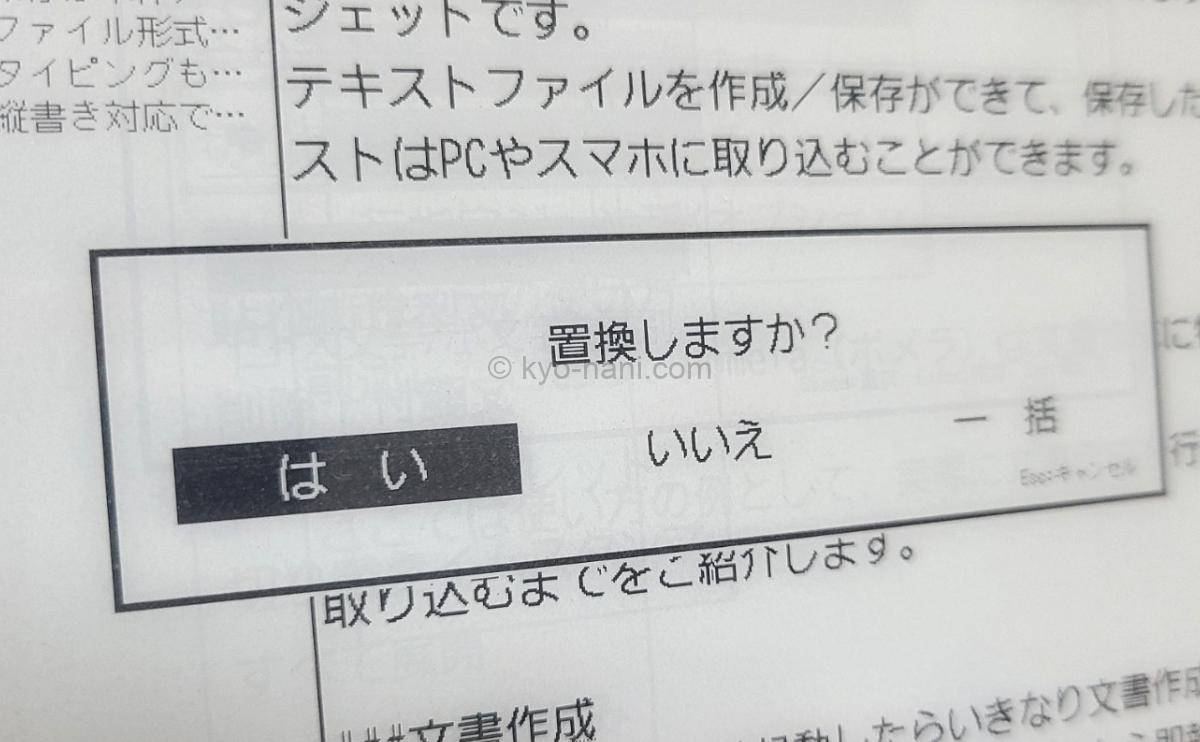 ファイル形式…
タイピングも…
縦書き対応で…
ジェットです。
テキストファイルを作成／保存ができて、保存した
ストはPCやスマホに取り込むことができます。
置換しますか？
© kyo-nani.com
はい
いいえ
一括
Esc:キャンセル
取り込むまでをご紹介します。
###文書作成
起動したらいきなり文書作成